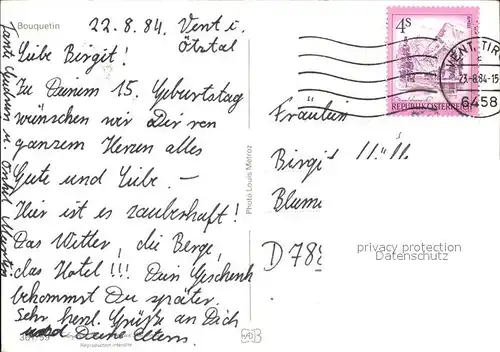 Bouquetin
22.8.84, Vent i.
Ötztal
Liebe Birgit!
Zu Deinem 15. Geburtstag
wünschen wir Dir von
ganzem Herzen alles
Gute und Liebe. —
Hier ist es zauberhaft!
Das Wetter, die Berge,
das Hotel!!! Dein Geschenk
bekommst Du später.
Sehr herzl. Grüße an Dich
und Deine Eltern.
Tante Gudrun u. Onkel
Photo Louis Metroz
Reproduction interdite
4S
REPUBLIK ÖSTERREICH
VENT, TIR
23-8.84-15
6458
Fräulein
Birgit
Blum
D 788
privacy protection
Datenschutz